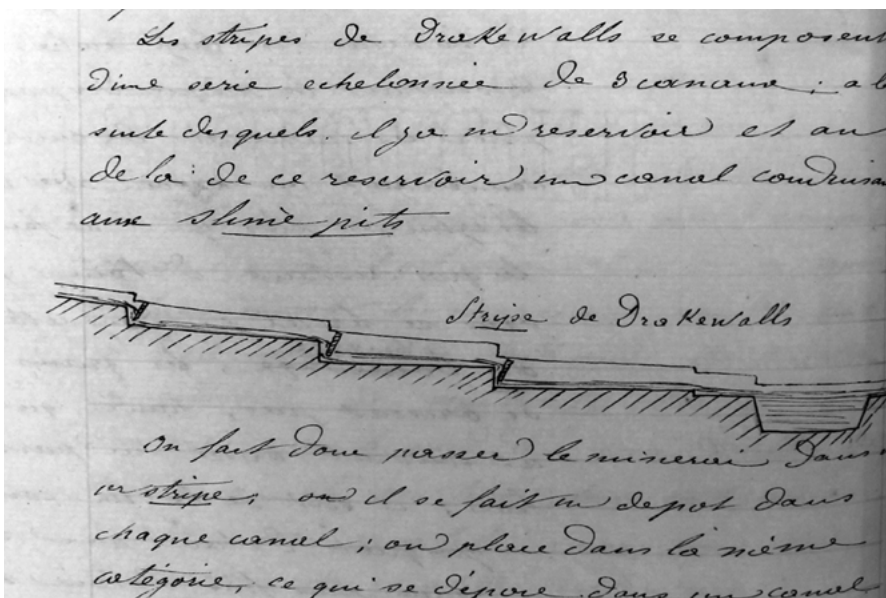 Les stripes de Drakewalls se composent
d'une serie echelonnée de 3 canaux ; a la
suite desquels il y a un reservoir et au
dela de ce reservoir un canal conduisan
aux slime pits
Stripe de Drakewalls
On fait donc passer le minerai dans
un stripe, ou il se fait un depot dans
chaque canal ; on place dans la même
catégorie, ce qui se dépose dans un canal